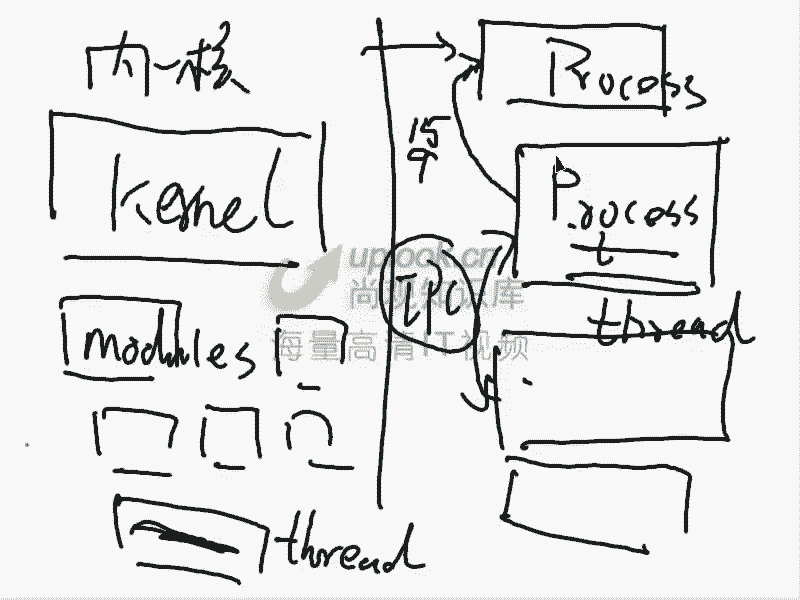 内核
Kernel
modules
thread
Process
15
9
Process
t
thread
IPC
uplook.cn
尚观知识库
海量高清IT视频